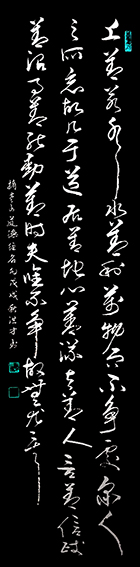 上善若水水善利萬物而不爭處眾人
之所惡故几于道居善地心善淵與善人言善信政
善治事善能動善時夫唯不爭故無尤
摘老子道德經名句戊戌秋